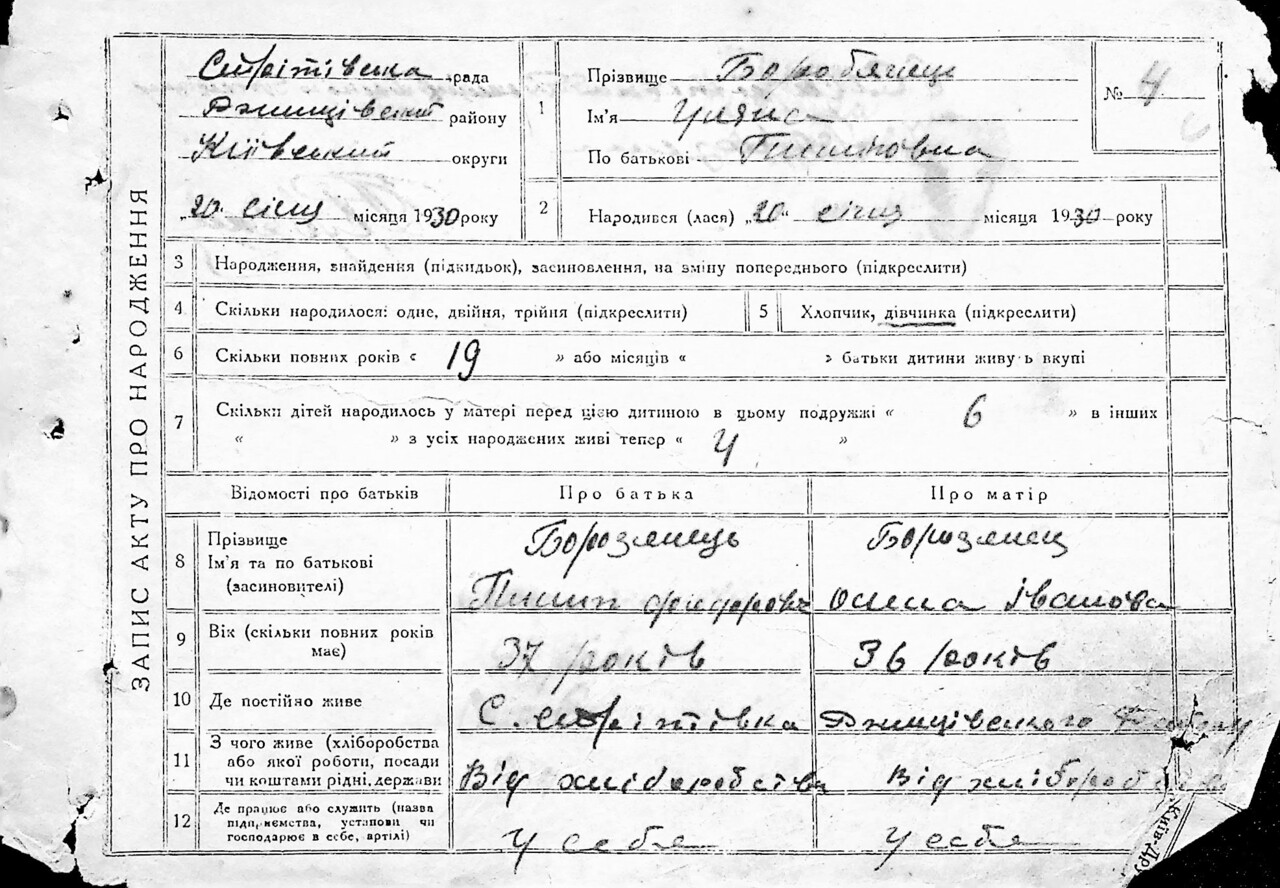 ЗАПИС АКТУ ПРО НАРОДЖЕННЯ
Стрітівська рада
Ржищівський району
Київський округи
„20 січня місяця 1930 року
1 Прізвище
Ім'я Уляна
По батькові Пилиповна
№ 4
2 Народився (лася) „20“ січня місяця 1930 року
3 Народження, знайдення (підкидьок), засиновлення, на зміну попереднього (підкреслити)
4 Скільки народилося: одне, двійня, трійня (підкреслити)
5 Хлопчик, дівчинка (підкреслити)
6 Скільки повних років « 19 » або місяців « » батьки дитини живуть вкупі
7 Скільки дітей народилось у матері перед цією дитиною в цьому подружжі « 6 » в інших
« » з усіх народжених живі тепер « 4 »
Відомості про батьків Про батька Про матір
8 Прізвище
Ім'я та по батькові
(засиновителі)
Борозянець
Пилип Федорович
Борозянец
Іванова
9 Вік (скільки повних років
має)
37 років
36 років
10 Де постійно живе
С. Стрітівка Ржищівського
11 З чого живе (хліборобства
або якої роботи, посади
чи коштами рідні, держави
Від хліборобства
Від хліборобства
12 Де працює або служить (назва
підприємства, установи чи
господарює в себе, артілі)
У себе
У себе
Київ-Др